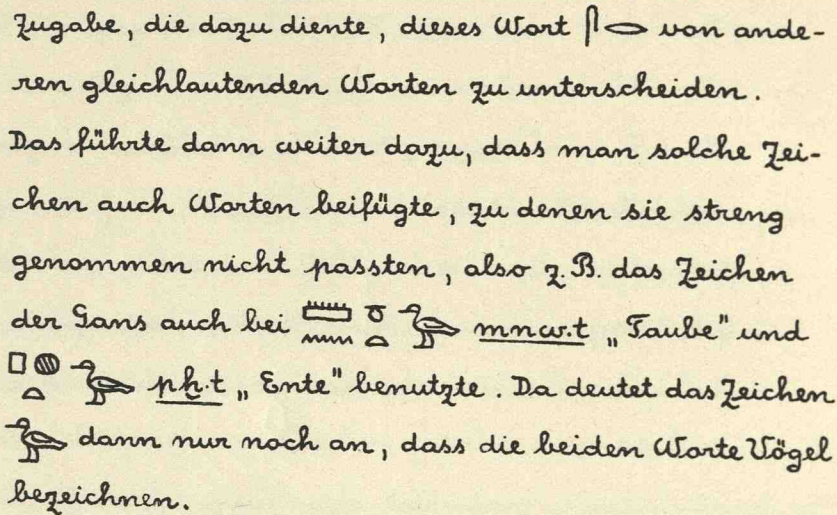 Zugabe, die dazu diente, dieses Wort 𓋴𓂋 von ande-
ren gleichlautenden Worten zu unterscheiden.
Das führte dann weiter dazu, dass man solche Zei-
chen auch Worten beifügte, zu denen sie streng
genommen nicht passten, also z.B. das Zeichen
der Gans auch bei 𓏠𓈖𓏌𓏏𓅬 mnw.t „Taube" und
𓊪𓐍𓏏𓅬 pḫ.t „Ente" benutzte. Da deutet das Zeichen
𓅬 dann nur noch an, dass die beiden Worte Vögel
bezeichnen.